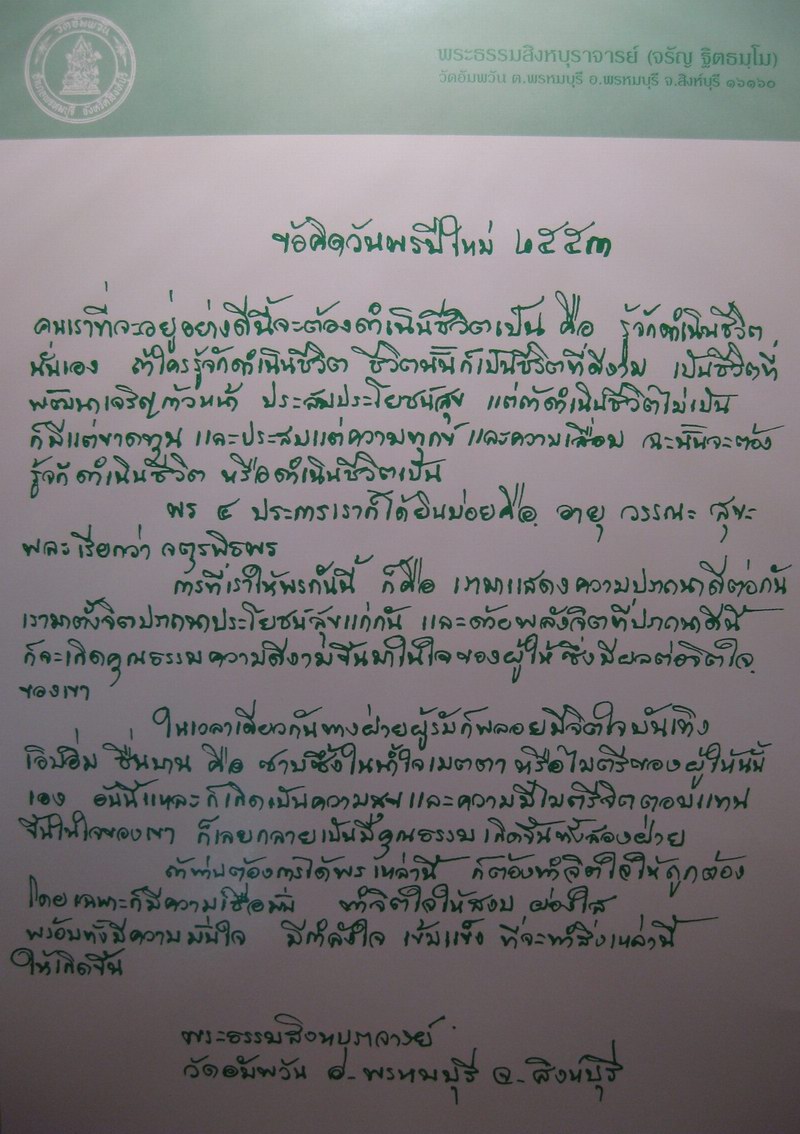 วัดอัมพวัน
พระธรรมสิงหบุราจารย์ (จรัญ ฐิตธมฺโม)
วัดอัมพวัน ต.พรหมบุรี อ.พรหมบุรี จ.สิงห์บุรี ๑๖๑๖๐
ข้อคิดวันพรปีใหม่ ๒๕๕๓
คนเราที่จะอยู่อย่างดีนี้จะต้องดำเนินชีวิตเป็น คือ รู้จักดำเนินชีวิต
นั่นเอง ถ้าใครรู้จักดำเนินชีวิต ชีวิตนั้นก็เป็นชีวิตที่ดีงาม เป็นชีวิตที่
พัฒนาเจริญก้าวหน้า ประสบประโยชน์สุข แต่ถ้าดำเนินชีวิตไม่เป็น
ก็มีแต่ขาดทุน และประสบแต่ความทุกข์ และความเสื่อม ฉะนั้นจะต้อง
รู้จักดำเนินชีวิต หรือดำเนินชีวิตเป็น
พร ๔ ประการเราก็ได้ยินบ่อยคือ อายุ วรรณะ สุขะ
พละ เรียกว่า จตุรพิธพร
การที่เราให้พรกันนี้ ก็คือ เรามาแสดงความปรารถนาดีต่อกัน
เรามาตั้งจิตปรารถนาประโยชน์สุขแก่กัน และด้วยพลังจิตที่ปรารถนาดีนี้
ก็จะเกิดคุณธรรมความดีงามขึ้นมาในใจของผู้ให้ ซึ่งมีผลต่อจิตใจ
ของเขา
ในเวลาเดียวกันทางฝ่ายผู้รับก็พลอยมีจิตใจบันเทิง
เอิบอิ่ม ชื่นบาน คือ ซาบซึ้งในน้ำใจเมตตา หรือไมตรีของผู้ให้นั้น
เอง อันนี้แหละก็เกิดเป็นความสุข และความมีไมตรีจิตตอบแทน
ขึ้นในใจของเขา ก็เลยกลายเป็นมีคุณธรรมเกิดขึ้นทั้งสองฝ่าย
ถ้าท่านต้องการได้พรเหล่านี้ ก็ต้องทำจิตใจให้ถูกต้อง
โดยเฉพาะก็มีความเชื่อมั่น ทำจิตใจให้สงบ ผ่องใส
พร้อมทั้งมีความมั่นใจ มีกำลังใจ เข้มแข็ง ที่จะทำสิ่งเหล่านี้
ให้เกิดขึ้น
พระธรรมสิงหบุราจารย์
วัดอัมพวัน อ. พรหมบุรี จ. สิงห์บุรี